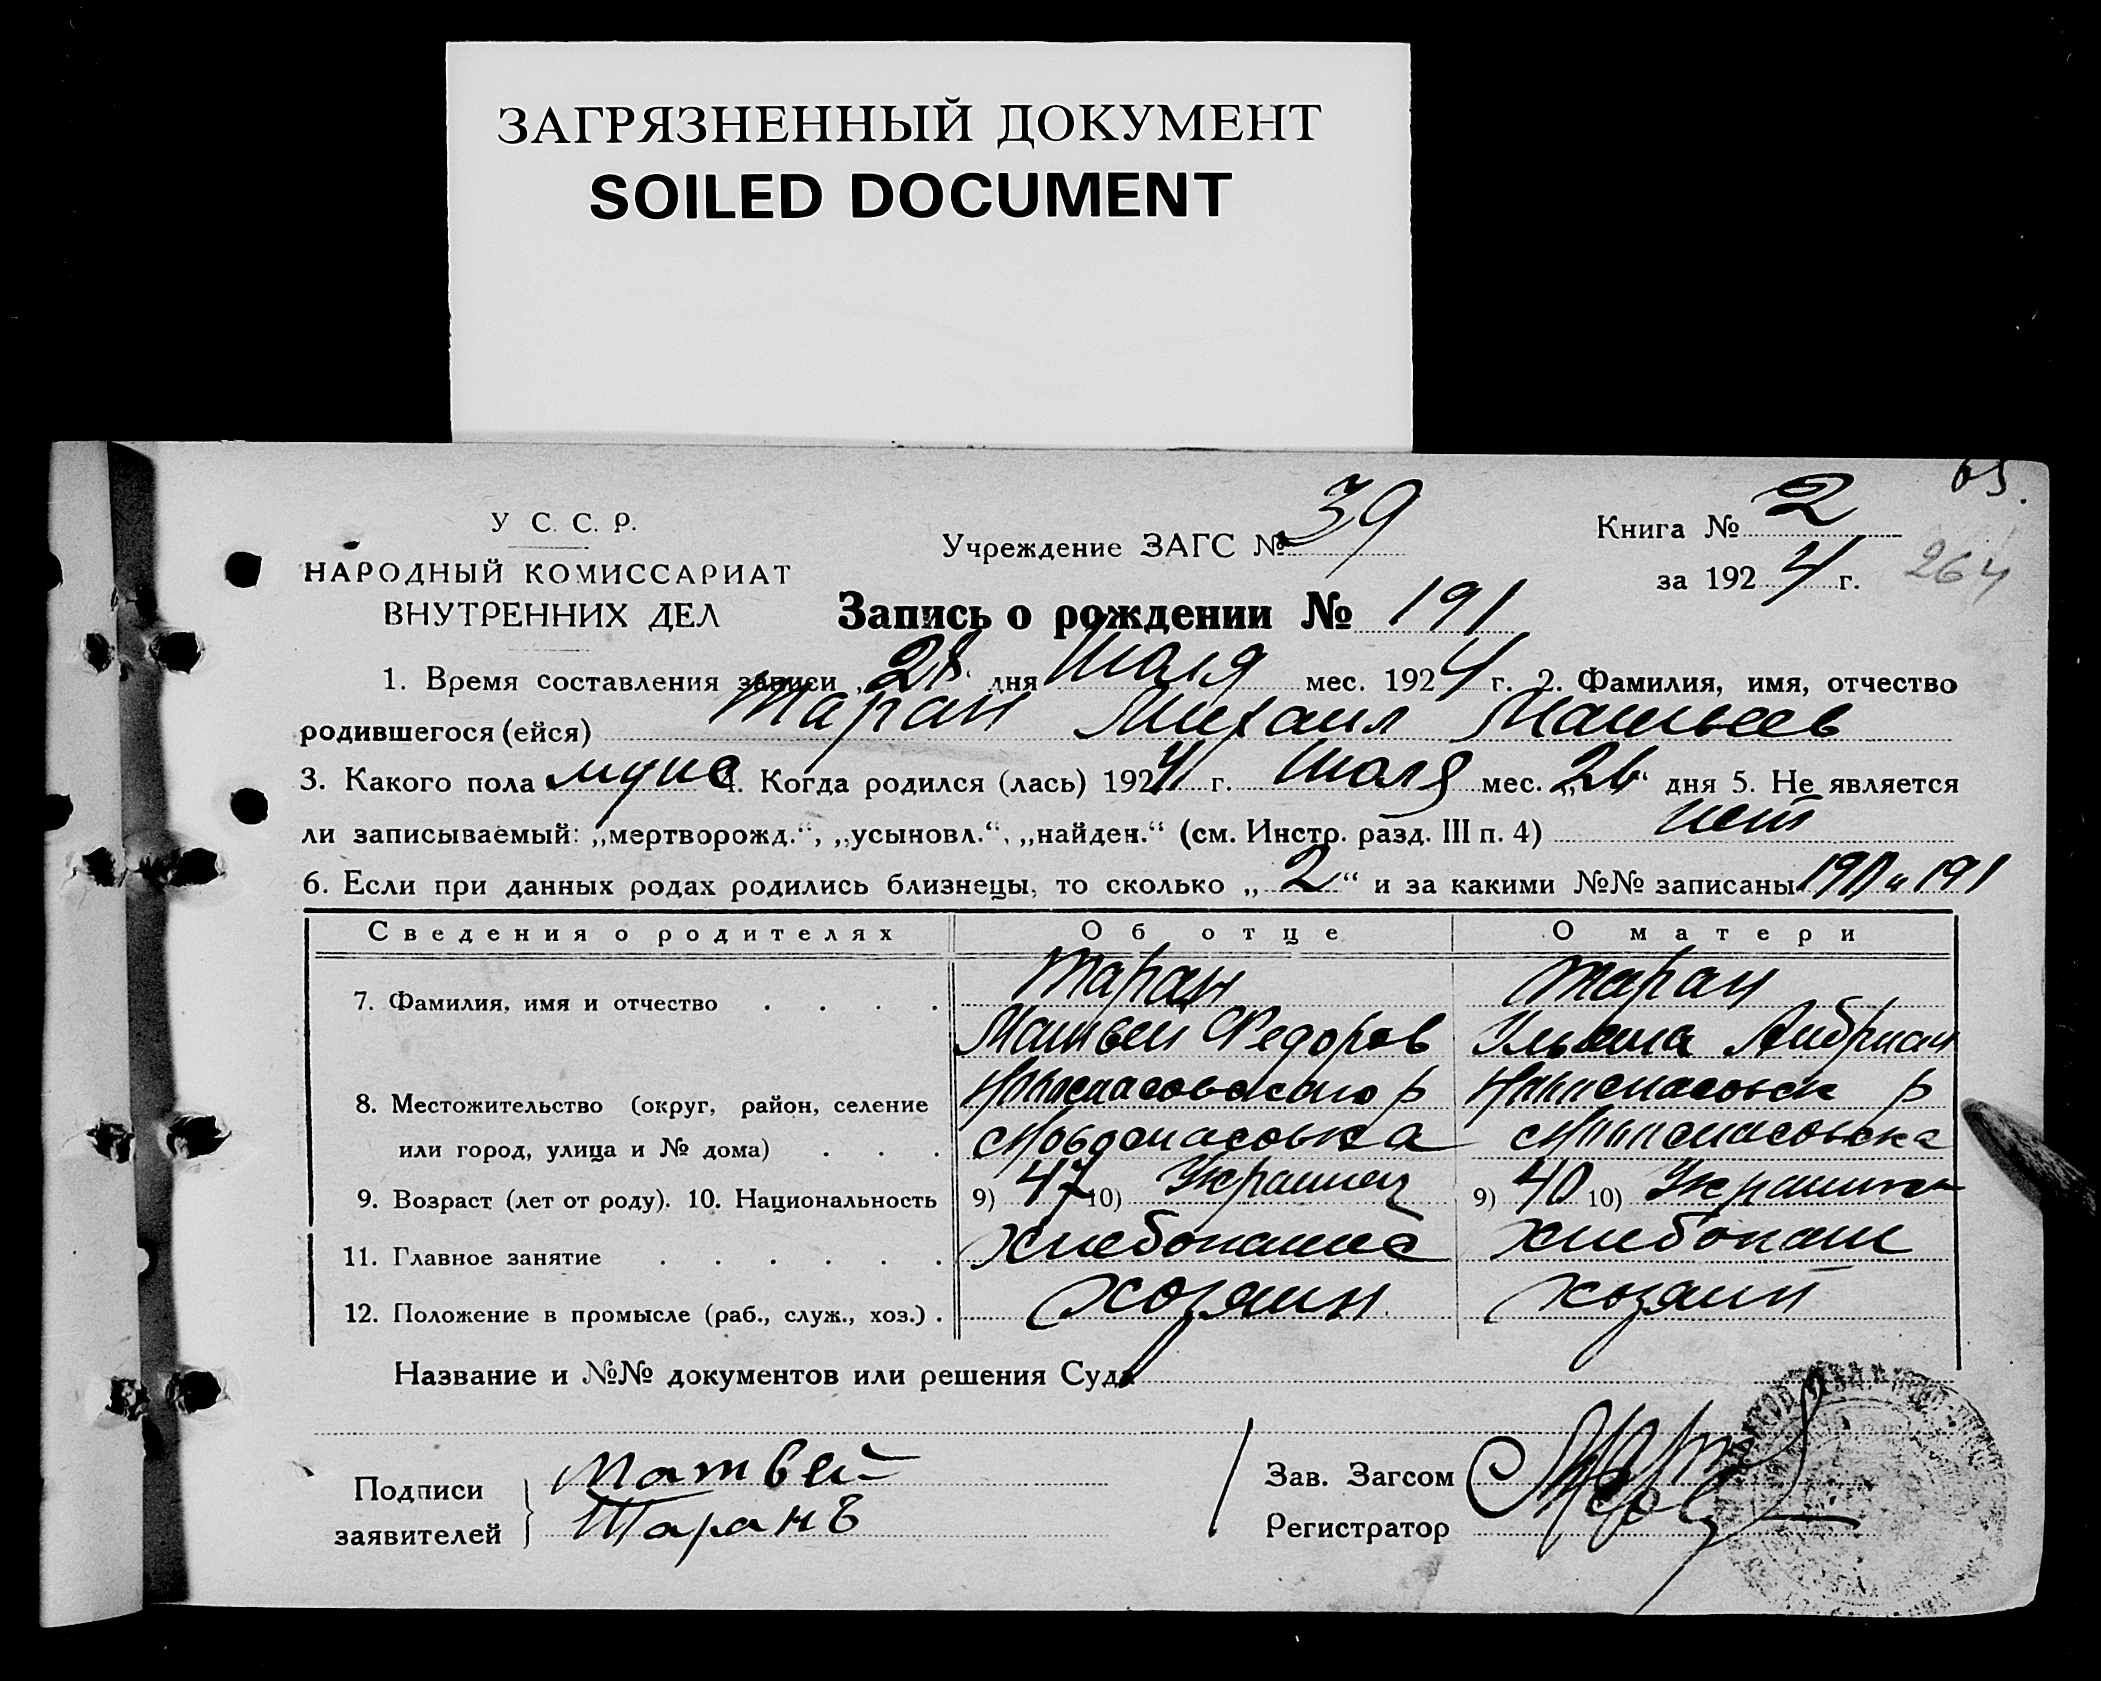 ЗАГРЯЗНЕННЫЙ ДОКУМЕНТ
SOILED DOCUMENT
У С. С. Р.
НАРОДНЫЙ КОМИССАРИАТ
ВНУТРЕННИХ ДЕЛ
Учреждение ЗАГС № 39
Книга № 2
за 1924 г.
264
Запись о рождении № 191
1. Время составления записи „28“ дня Июля мес. 1924 г. 2. Фамилия, имя, отчество
родившегося (ейся) Таран Михаил Матвеев
3. Какого пола мужс 4. Когда родился (лась) 1924 г. Июля мес. „26“ дня 5. Не является
ли записываемый: „мертворожд.“, „усыновл.“, „найден.“ (см. Инстр. разд. III п. 4) нет
6. Если при данных родах родились близнецы, то сколько „2“ и за какими №№ записаны 190 и 191
Сведения о родителях Об отце О матери
7. Фамилия, имя и отчество Таран Таран
Матвей Федоров Ульяна Андриан
8. Местожительство (округ, район, селение р р
или город, улица и № дома) Новоспасовка
9. Возраст (лет от роду). 10. Национальность 9) 47 10) Украинец 9) 40 10) Украинка
11. Главное занятие Хлебопашес Хлебопаш
12. Положение в промысле (раб., служ., хоз.) хозяин хозяин
Название и №№ документов или решения Суда
Подписи заявителей
Матвей
Таранъ
Зав. Загсом
Регистратор